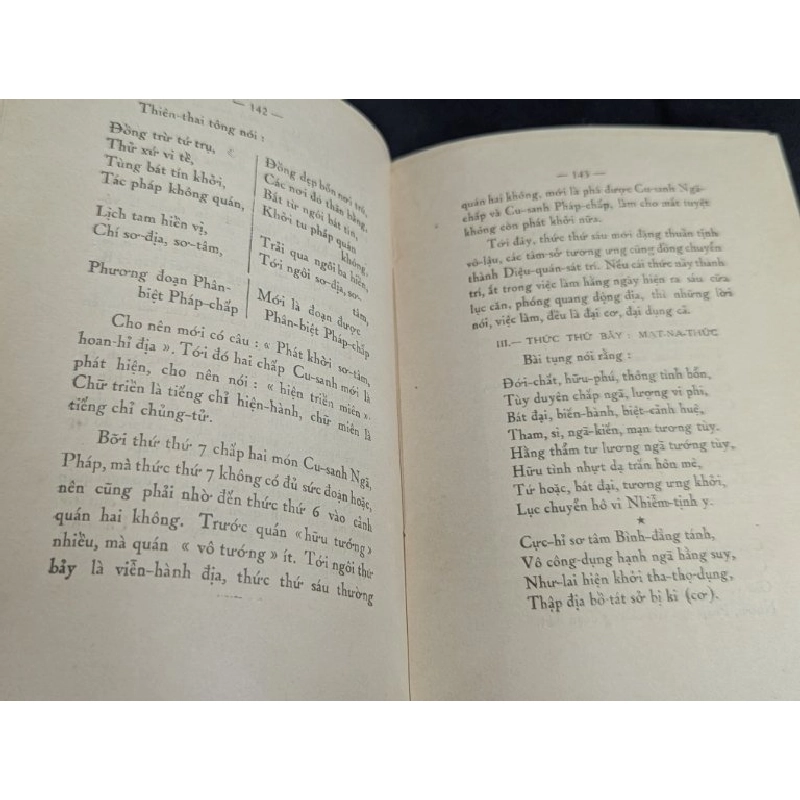 — 142 —
Thiên-thai tông nói :
Đồng trừ tứ trụ,
Thử xứ vi tề,
Tùng bát tín khởi,
Tác pháp không quán,
Lịch tam hiền vị,
Chí sơ-địa, sơ-tâm,
Phương đoạn Phân-
biệt Pháp-chấp
Đồng dẹp bốn nơi trú,
Các nơi đó thân bằng,
Bắt từ ngôi bát tín,
Khởi tu pháp quán
không,
Trải qua ngôi ba hiền,
Tới ngôi sơ-địa, sơ-
tâm,
Mới là đoạn được
Phân-biệt Pháp-chấp
Cho nên mới có câu : « Phát khởi sơ-tâm,
hoan-hỉ địa ». Tới đó hai chấp Cu-sanh mới là
phát hiện, cho nên nói : « hiện triền miên ».
Chữ triền là tiếng chỉ hiện-hành, chữ miên là
tiếng chỉ chủng-tử.
Bởi thứ thứ 7 chấp hai món Cu-sanh Ngã,
Pháp, mà thức thứ 7 không có đủ sức đoạn hoặc,
nên cũng phải nhờ đến thức thứ 6 vào cảnh
quán hai không. Trước quán «hữu tướng»
nhiều, mà quán « vô tướng» ít. Tới ngôi thứ
bảy là viễn-hành địa, thức thứ sáu thường
— 143 —
quán hai không, mới là phá được Cu-sanh Ngã-
chấp và Cu-sanh Pháp-chấp, làm cho mất tuyệt
không còn phát khởi nữa.
Tới đây, thức thứ sáu mới đặng thuần tịnh
vô-lậu, các tâm-sở tương ưng cũng đồng chuyển
thành Diệu-quán-sát trí. Nếu cái thức này thành
trí, ắt trong việc làm hằng ngày hiện ra sáu cửa
lục căn, phóng quang động địa, thì những lời
nói, việc làm, đều là đại cơ, đại dụng cả.
III.— THỨC THỨ BẢY : MẠT-NA-THỨC
Bài tụng nói rằng :
Đới-chất, hữu-phú, thông tình bổn,
Tùy duyên chấp ngã, lượng vi phi,
Bát đại, biến-hành, biệt-cảnh huệ,
Tham, si, ngã-kiến, mạn tương tùy.
Hằng thẩm tư lương ngã tướng tùy,
Hữu tình nhựt dạ trấn hôn mê,
Tứ hoặc, bát đại, tương ưng khởi,
Lục chuyển hô vi Nhiễm-tịnh y.
★
Cực-hỉ sơ tâm Bình-đẳng tánh,
Vô công-dụng hạnh ngã hằng suy,
Như-lai hiện khởi tha-thọ-dụng,
Thập địa bồ-tát sở bị kì (cơ).